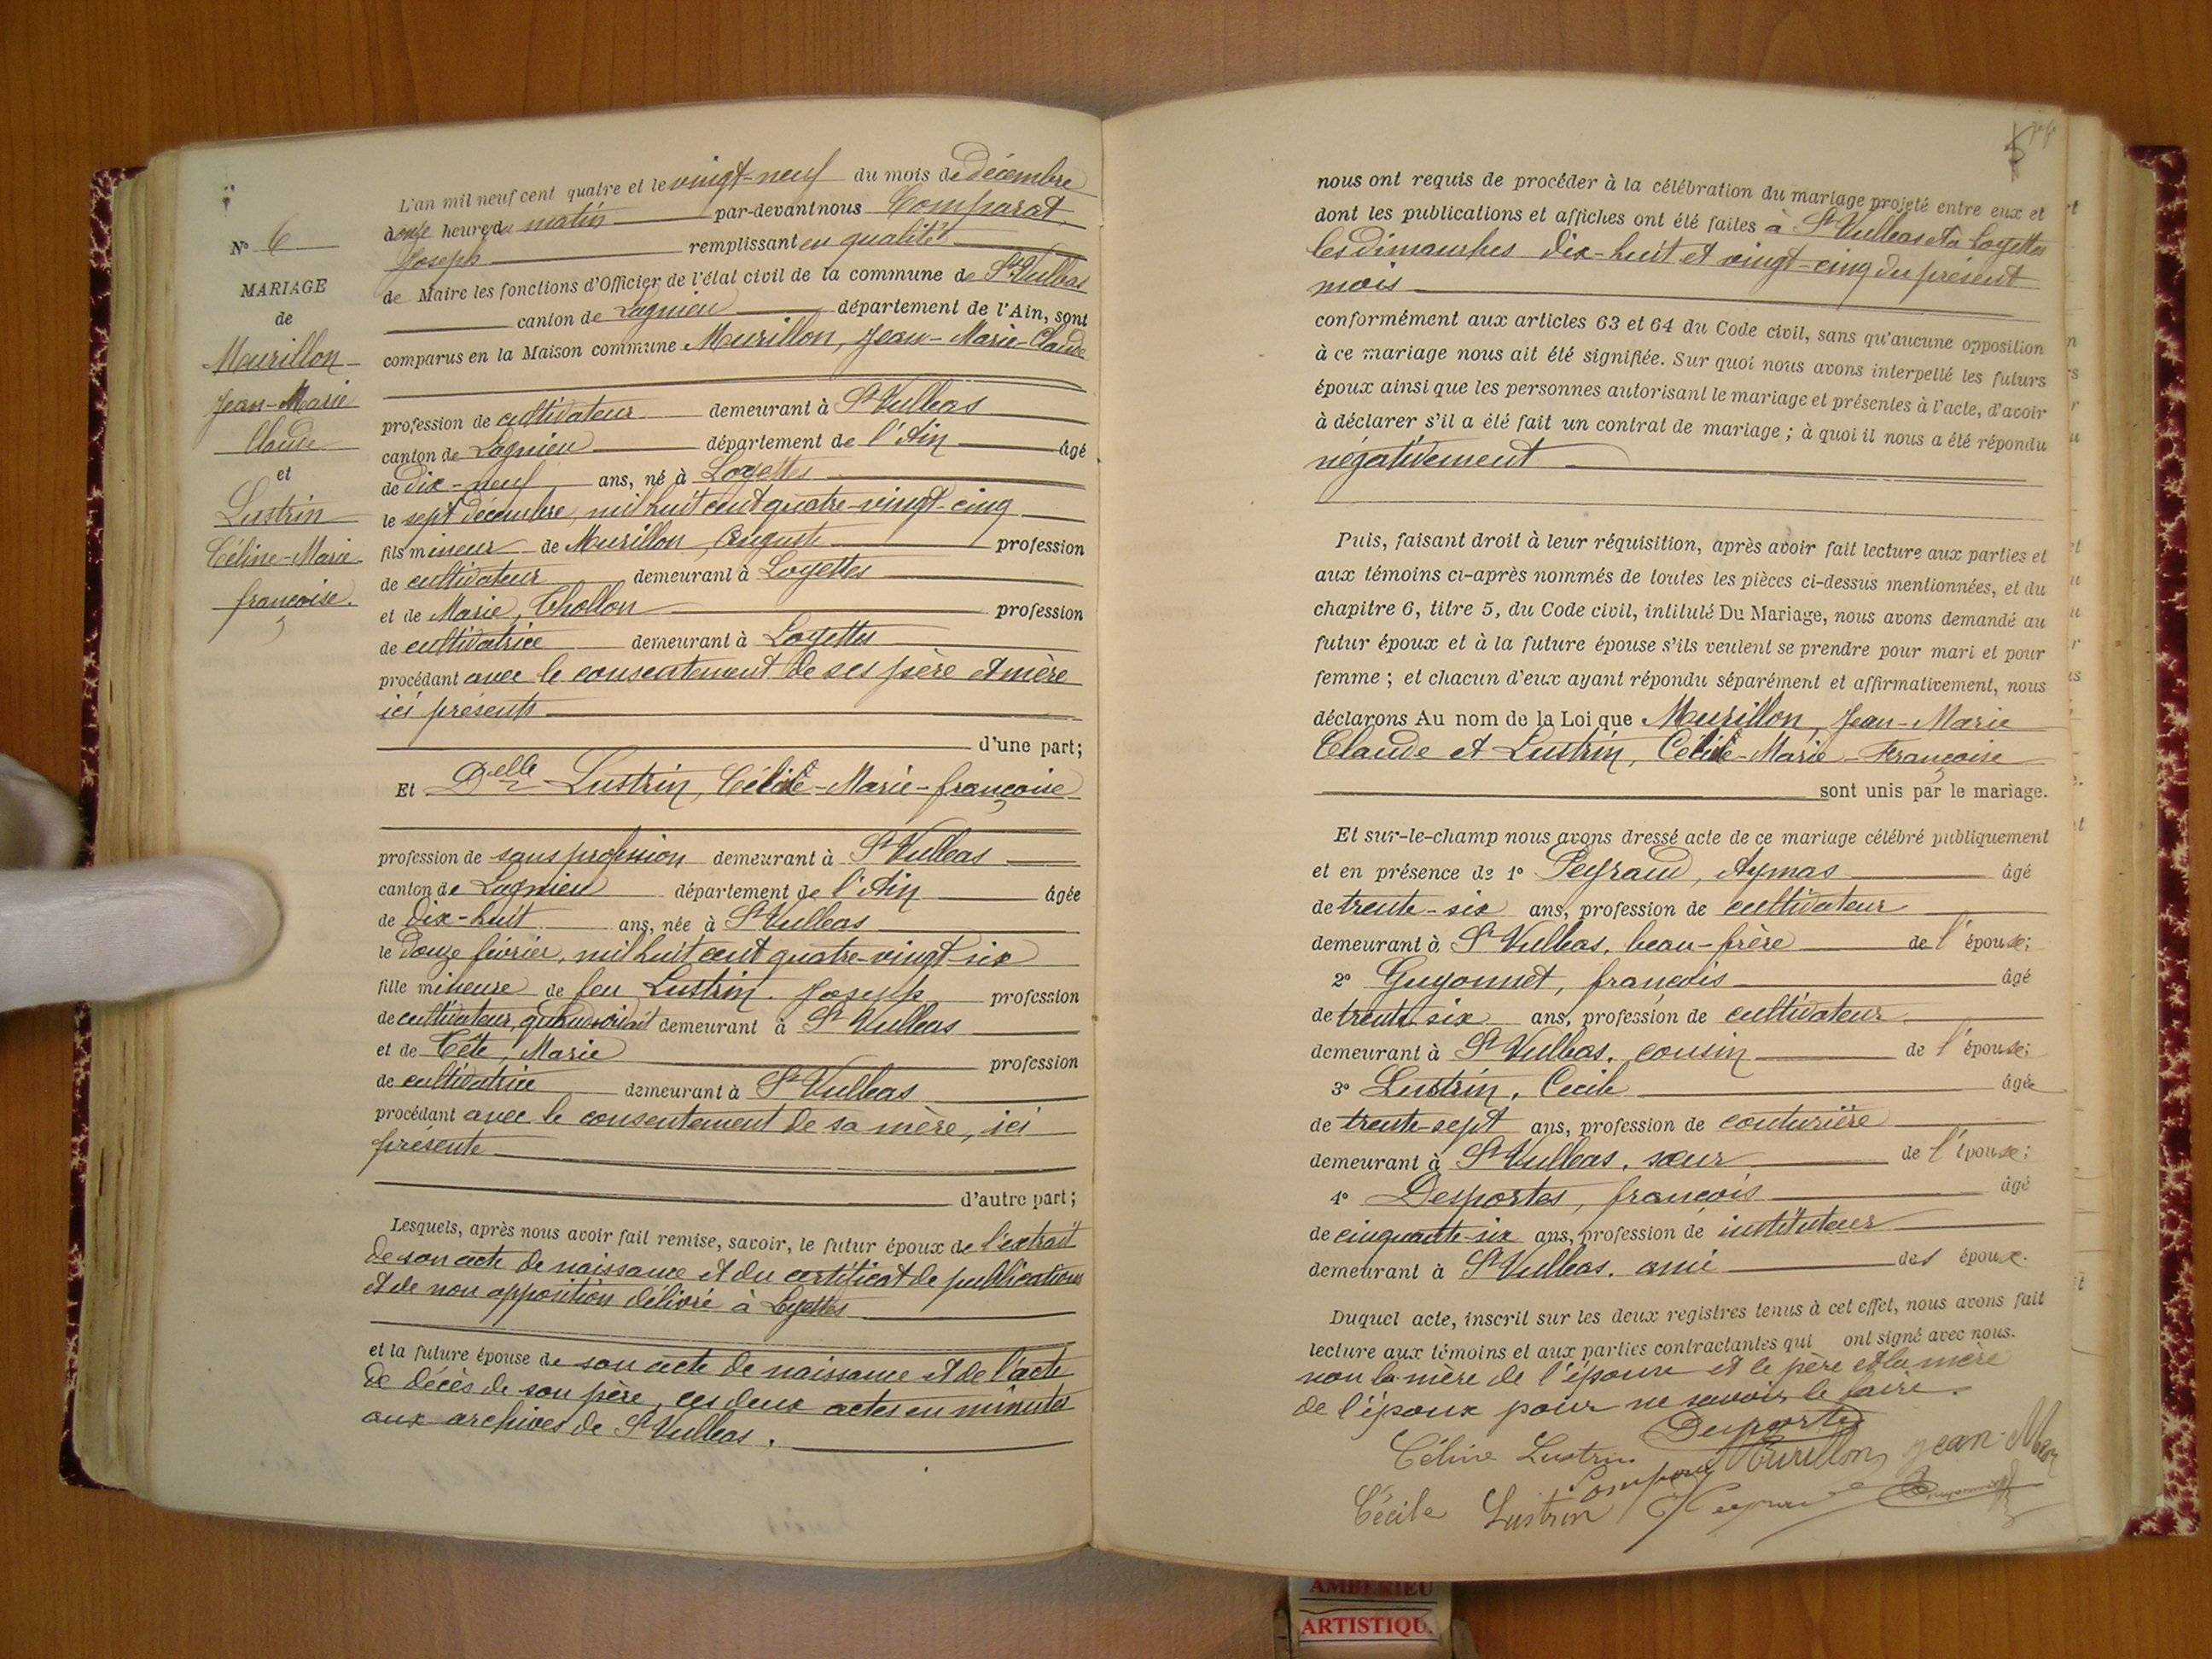 N° 6
MARIAGE
de
Murillon
Jean-Marie
Claude
et
Lustrin
Céline-Marie
françoise.
L'an mil neuf cent quatre et le vingt-neuf du mois de décembre
à onze heures du matin par-devant nous Comparat
Joseph remplissant en qualité
de Maire les fonctions d'Officier de l'état civil de la commune de St Vulbas
canton de Lagnieu département de l'Ain, sont
comparus en la Maison commune Murillon, Jean-Marie-Claude
profession de cultivateur demeurant à St Vulbas
canton de Lagnieu département de l'Ain âgé
de dix-neuf ans, né à Loyettes
le sept décembre, mil huit cent quatre-vingt-cinq
fils mineur de Murillon, Auguste profession
de cultivateur demeurant à Loyettes
et de Marie, Chollon profession
de cultivatrice demeurant à Loyettes
procédant avec le consentement de ses père et mère
ici présents
d'une part;
Et Delle Lustrin, Céline-Marie-françoise
profession de sans profession demeurant à St Vulbas
canton de Lagnieu département de l'Ain âgée
de dix-huit ans, née à St Vulbas
le douze février, mil huit cent quatre-vingt-six
fille mineure de feu Lustrin, Joseph profession
de cultivateur, quand vivait demeurant à St Vulbas
et de Tête, Marie profession
de cultivatrice demeurant à St Vulbas
procédant avec le consentement de sa mère, ici
présente
d'autre part;
Lesquels, après nous avoir fait remise, savoir, le futur époux de l'extrait
de son acte de naissance et du certificat de publications
et de non opposition délivré à Loyettes
et la future épouse de son acte de naissance et de l'acte
de décès de son père, ces deux actes en minutes
aux archives de St Vulbas.
nous ont requis de procéder à la célébration du mariage projeté entre eux et
dont les publications et affiches ont été faites à St Vulbas et à Loyettes
les dimanches dix-huit et vingt-cinq du présent
mois
conformément aux articles 63 et 64 du Code civil, sans qu'aucune opposition
à ce mariage nous ait été signifiée. Sur quoi nous avons interpellé les futurs
époux ainsi que les personnes autorisant le mariage et présentes à l'acte, d'avoir
à déclarer s'il a été fait un contrat de mariage; à quoi il nous a été répondu
négativement
Puis, faisant droit à leur réquisition, après avoir fait lecture aux parties et
aux témoins ci-après nommés de toutes les pièces ci-dessus mentionnées, et du
chapitre 6, titre 5, du Code civil, intitulé Du Mariage, nous avons demandé au
futur époux et à la future épouse s'ils veulent se prendre pour mari et pour
femme; et chacun d'eux ayant répondu séparément et affirmativement, nous
déclarons Au nom de la Loi que Murillon, Jean-Marie
Claude et Lustrin, Céline-Marie-Françoise
sont unis par le mariage.
Et sur-le-champ nous avons dressé acte de ce mariage célébré publiquement
et en présence de 1° Peyraud, Aymas âgé
de trente-six ans, profession de cultivateur
demeurant à St Vulbas, beau-frère de l'épouse;
2° Guyonnet, françois âgé
de trente-six ans, profession de cultivateur
demeurant à St Vulbas, cousin de l'épouse;
3° Lustrin, Cécile âgée
de trente-sept ans, profession de couturière
demeurant à St Vulbas, sœur de l'épouse;
4° Desportes, françois âgé
de cinquante-six ans, profession de instituteur
demeurant à St Vulbas, ami des époux.
Duquel acte, inscrit sur les deux registres tenus à cet effet, nous avons fait
lecture aux témoins et aux parties contractantes qui ont signé avec nous.
non la mère de l'épouse et le père et la mère
de l'époux pour ne savoir le faire.
Desportes
Céline Lustrin Murillon Jean-Marie
Comparat
Cécile Lustrin Peyraud Guyonnet
AMBERIEU
ARTISTIQU